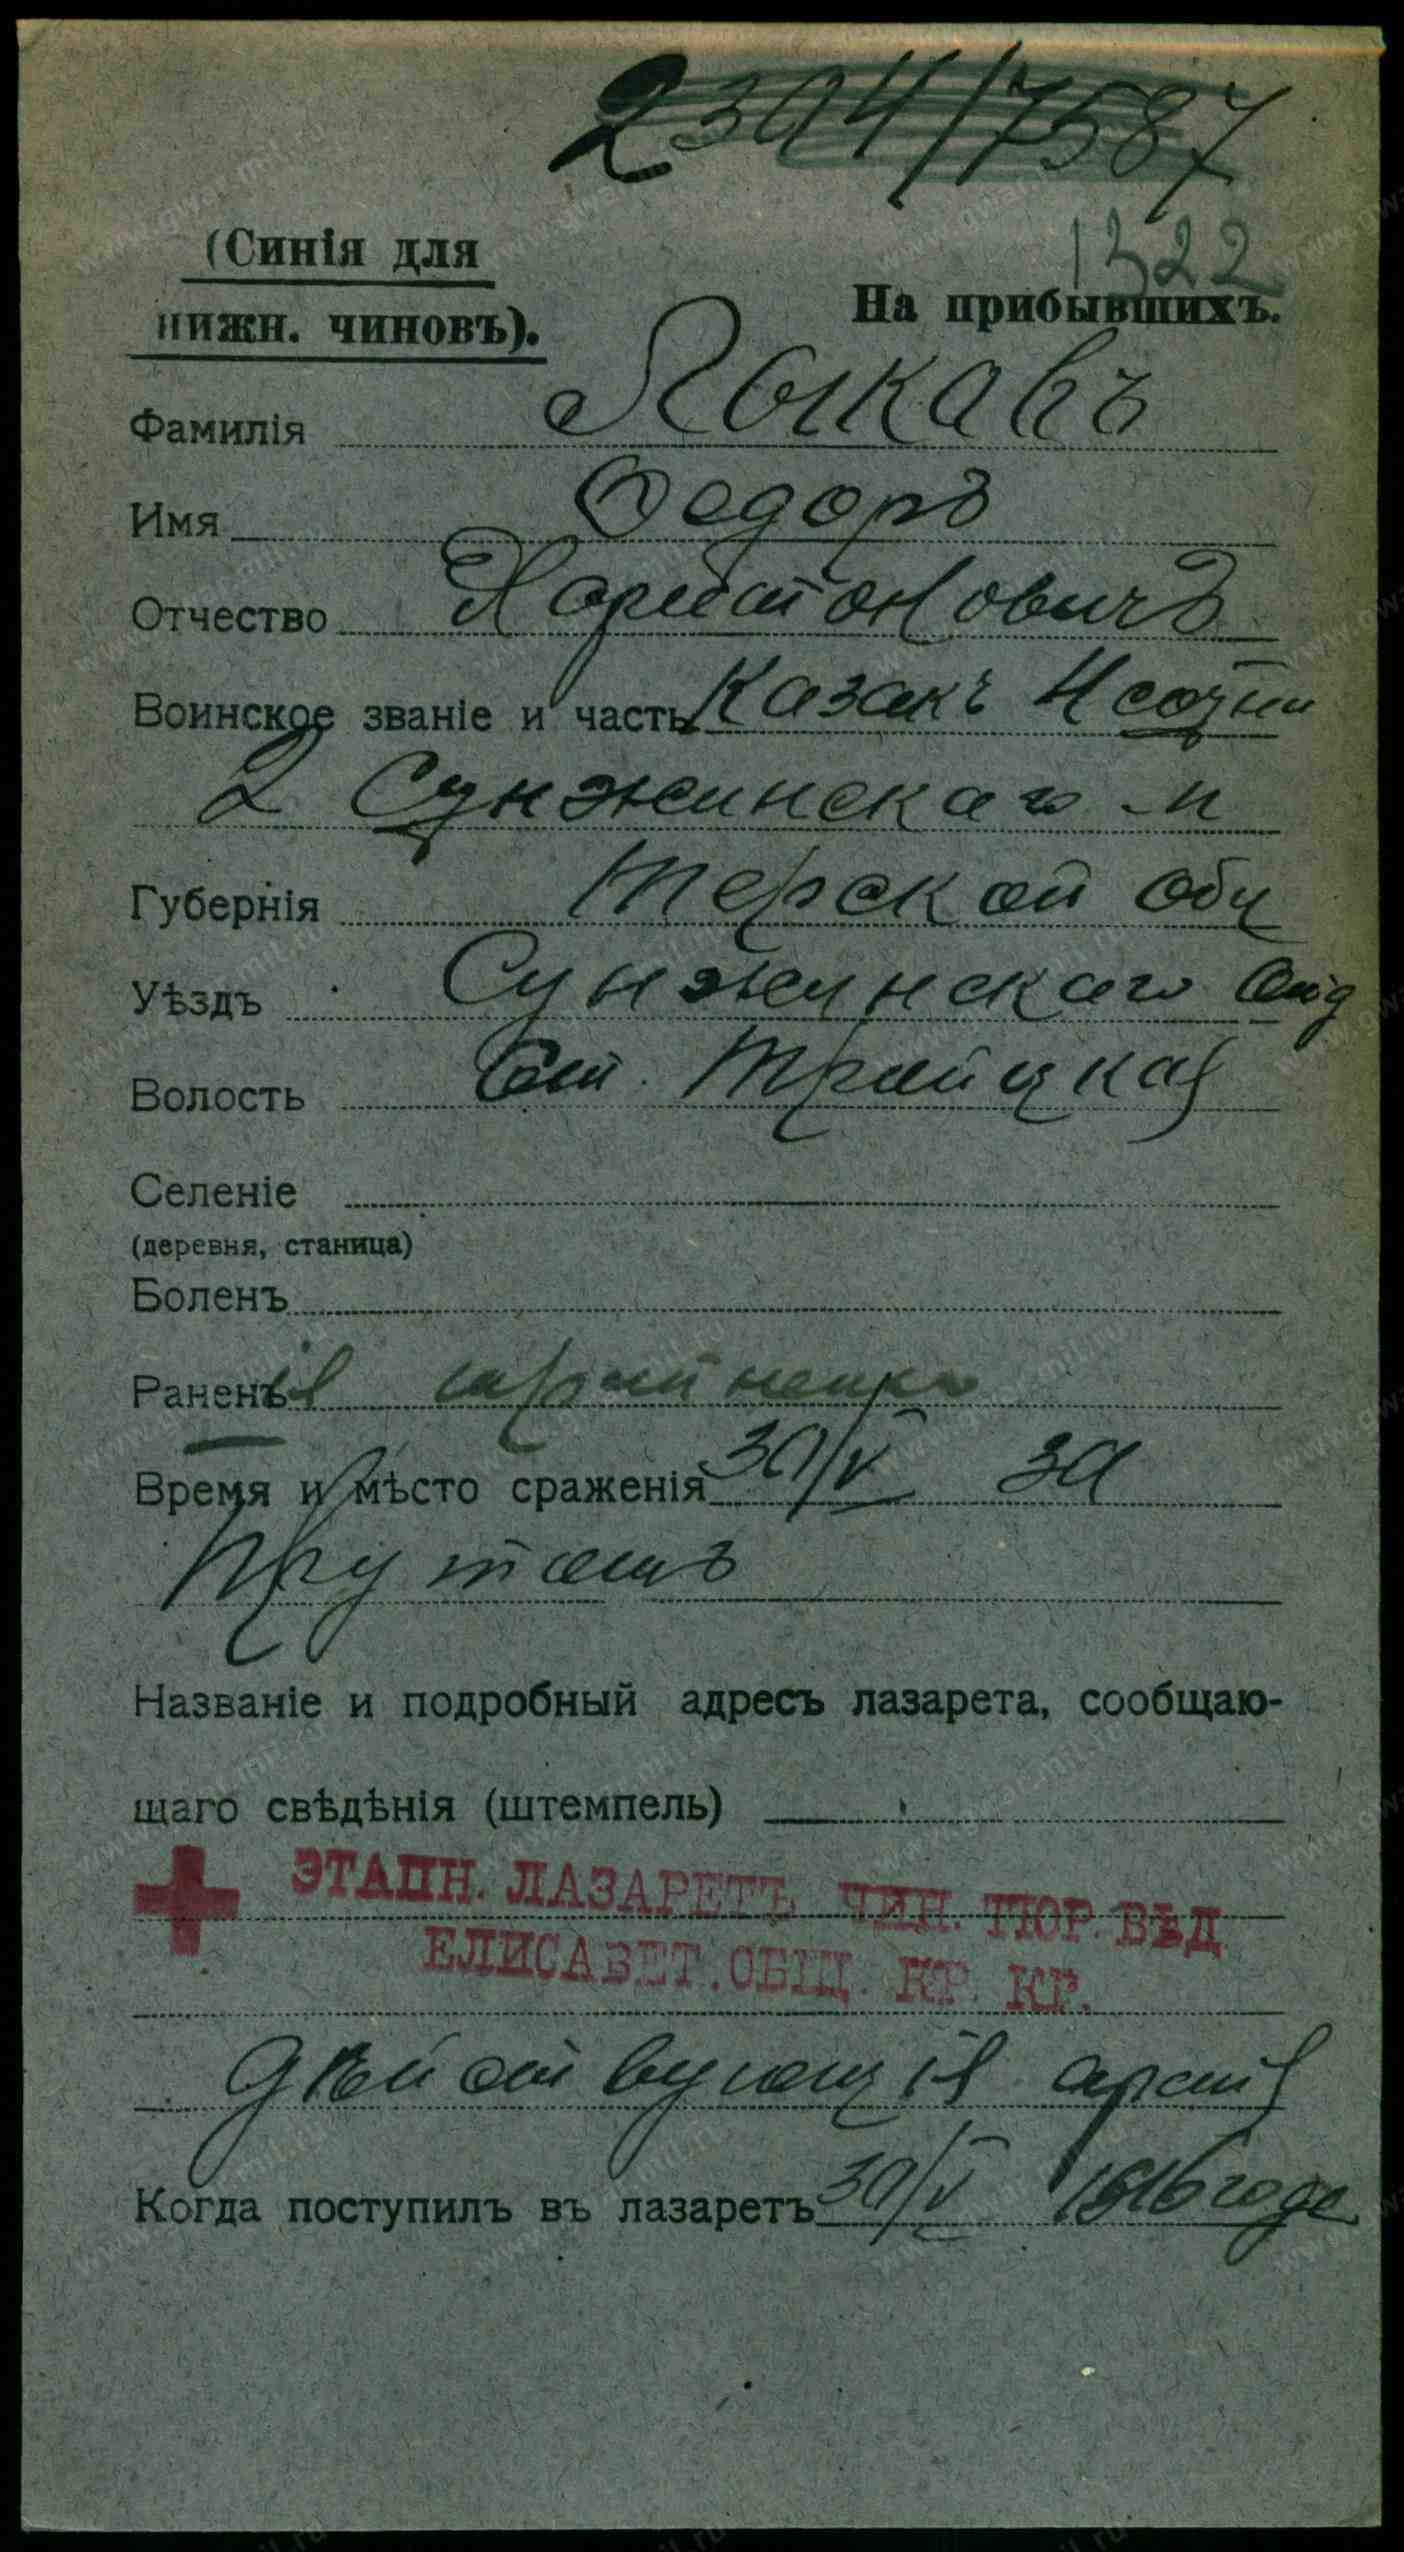 2304/7587
1322
(Синія для
нижн. чиновъ).
На прибывшихъ.
Фамилія Лыковъ
Имя Федоръ
Отчество Харитоновичъ
Воинское званіе и часть Казакъ 4 сотни
2 Сунжинскаго п
Губернія Терской Обл
Уѣздъ Сунжинскаго Отд
Волость Ст. Троицкая
Селеніе
(деревня, станица)
Боленъ
Раненъ
Время и мѣсто сраженія 30/V за
Прутомъ
Названіе и подробный адресъ лазарета, сообщаю-
щаго свѣдѣнія (штемпель)
ЭТАПН. ЛАЗАРЕТЪ ЧИН. ТЮР. ВѢД
ЕЛИСАВЕТ. ОБЩ. КР. КР.
Дѣйствующія армія
Когда поступилъ въ лазаретъ 30/V 1916 года